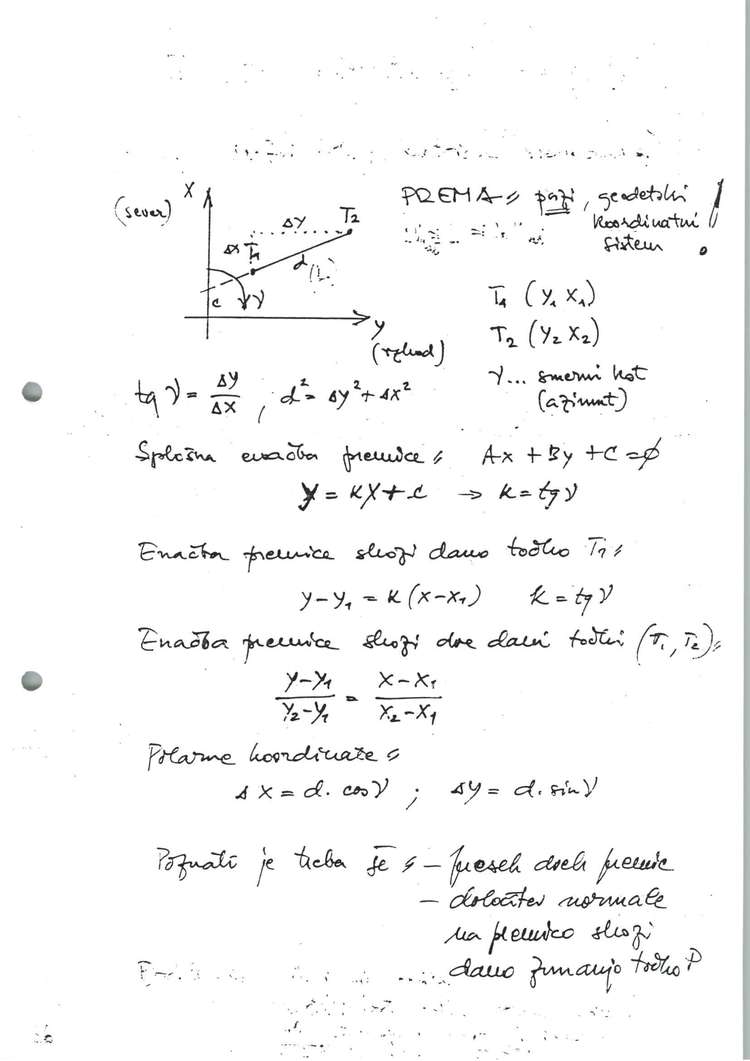 PREMA = pazi, geodetski
koordinatni
sistem !
X
(sever)
ΔY
T2
ΔX T1
d
(L)
c
ν
y
(vzhod)
T1 (Y1 X1)
T2 (Y2 X2)
ν... smerni kot
(azimut)
tg ν = ΔY/ΔX , d² = ΔY² + ΔX²
Splošna enačba premice: Ax + By + C = 0
y = kX + c → k = tg ν
Enačba premice skozi dano točko T1:
y - y1 = k (x - x1) k = tg ν
Enačba premice skozi dve dani točki (T1, T2):
(y - y1)/(y2 - y1) = (x - x1)/(x2 - x1)
Polarne koordinate:
ΔX = d. cos ν ; ΔY = d. sin ν
Poznati je treba še: - presek dveh premic
- določitev normale
na premico skozi
dano zunanjo točko P